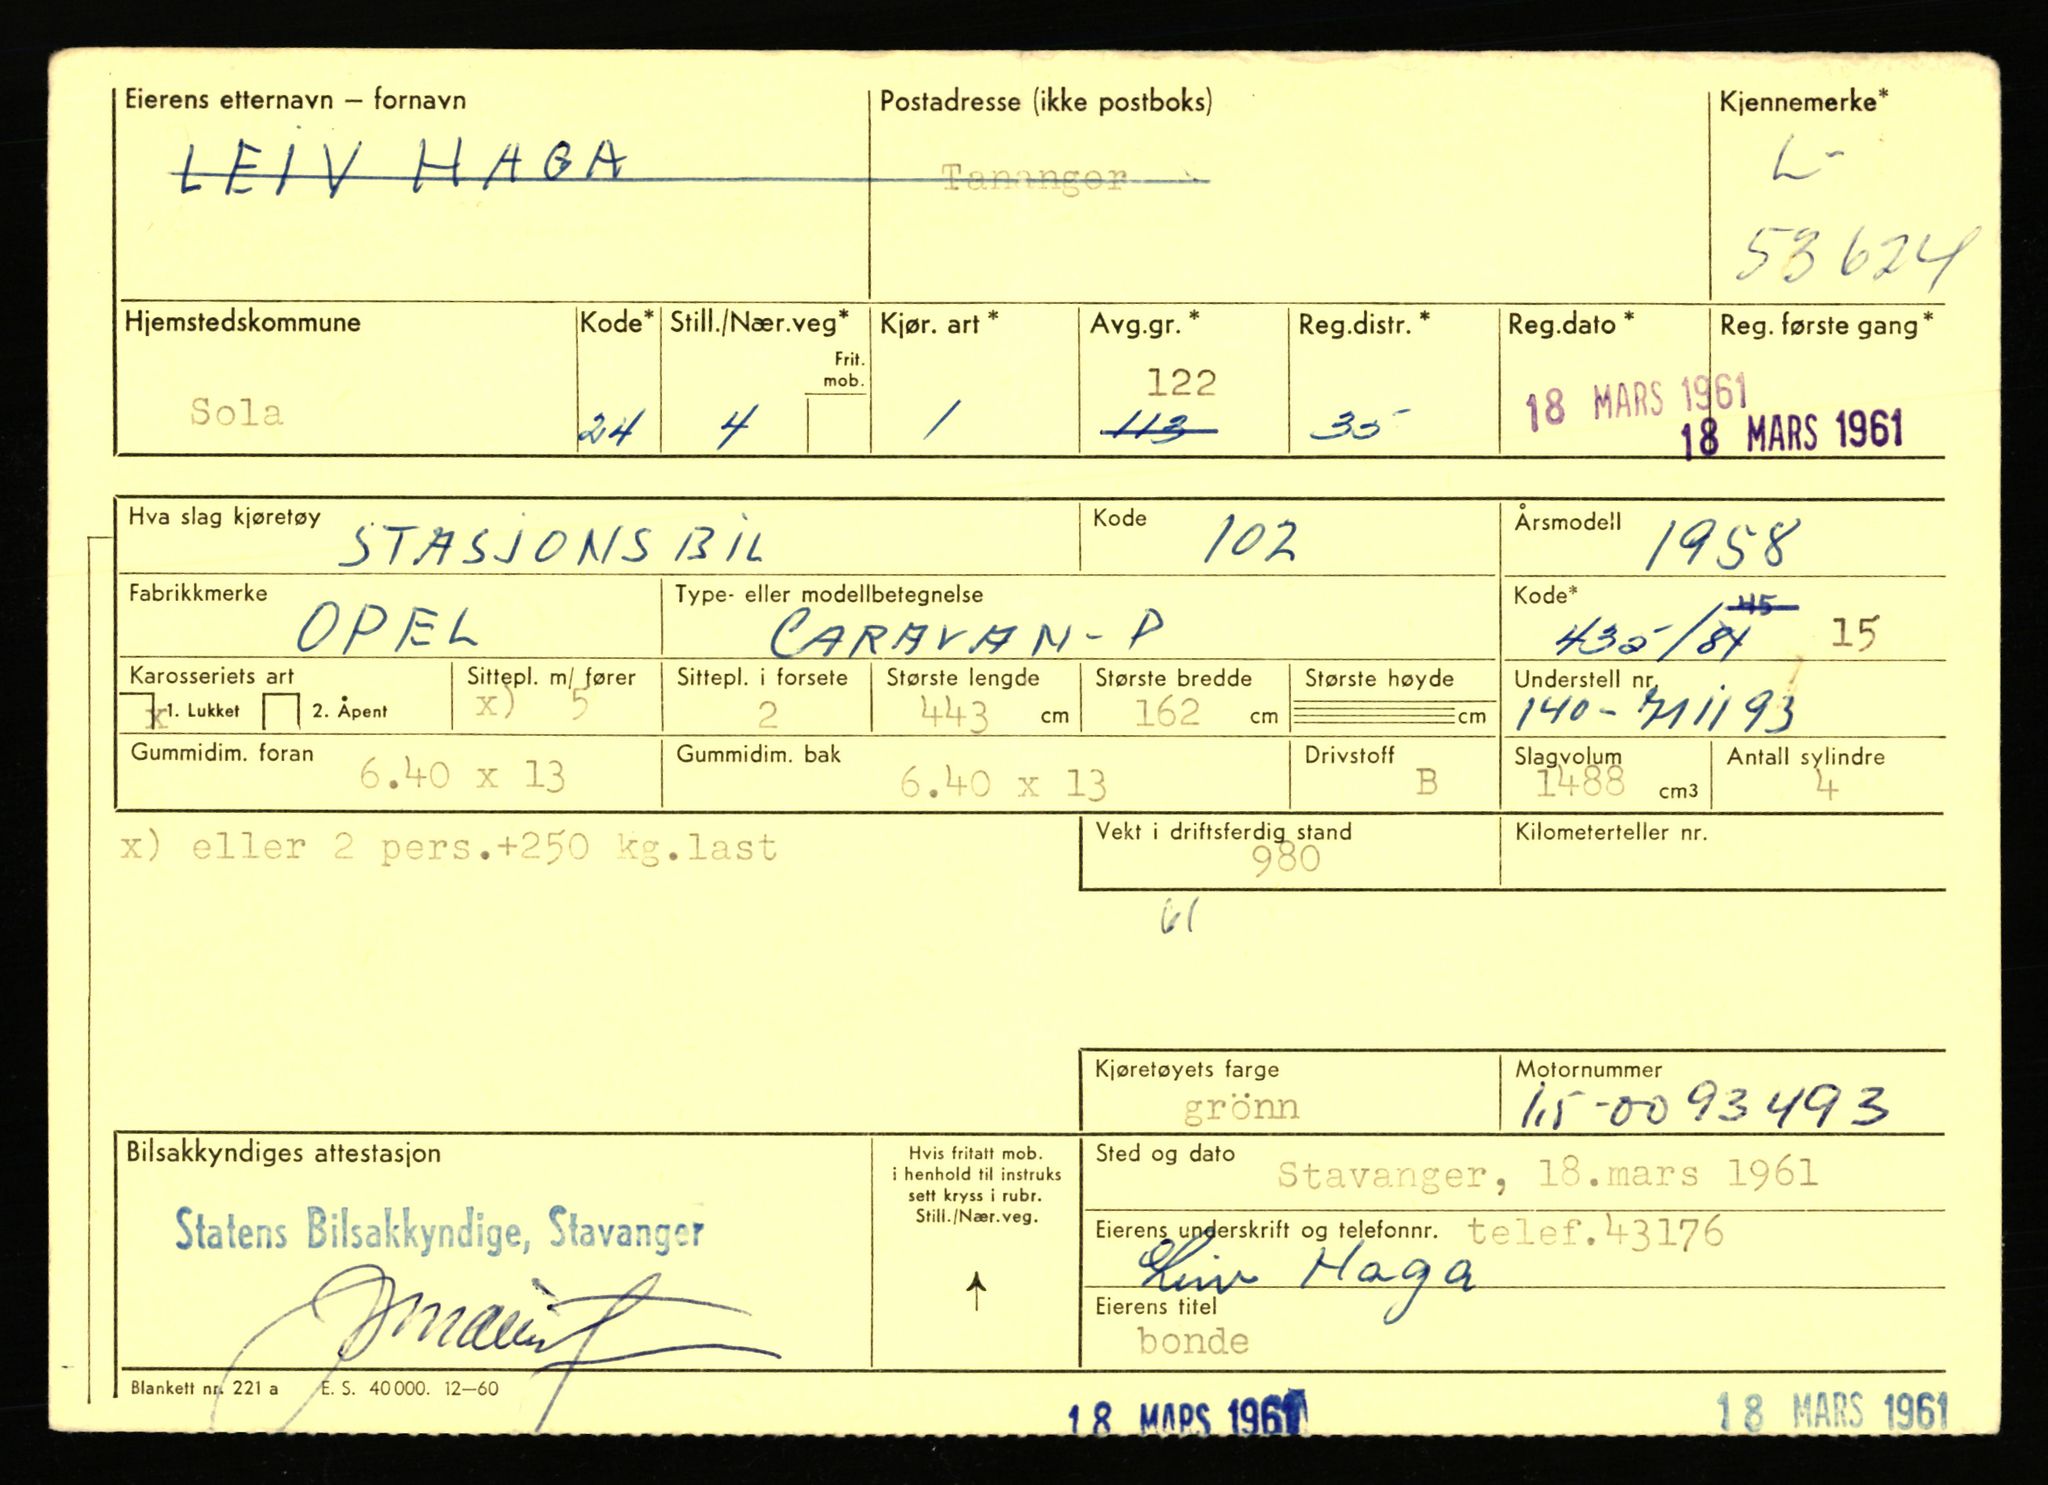 Eierens etternavn – fornavn Postadresse (ikke postboks) Kjennemerke*
LEIV HAGA Tananger L-
53624
Hjemstedskommune Kode* Still./Nær.veg* Kjør. art* Avg.gr.* Reg.distr.* Reg.dato* Reg. første gang*
Frit. mob.
122
Sola 24 4 1 113 35 18 MARS 1961
18 MARS 1961
Hva slag kjøretøy STASJONSBIL Kode 102 Årsmodell 1958
Fabrikkmerke OPEL Type- eller modellbetegnelse CARAVAN-P Kode* 435/84 45 15
Karosseriets art Sittepl. m/ fører Sittepl. i forsete Største lengde Største bredde Største høyde Understell nr.
x 1. Lukket 2. Åpent x) 5 2 443 cm 162 cm cm 140-711193
Gummidim. foran Gummidim. bak Drivstoff Slagvolum Antall sylindre
6.40 x 13 6.40 x 13 B 1488 cm3 4
x) eller 2 pers.+250 kg.last
Vekt i driftsferdig stand Kilometerteller nr.
980
61
Kjøretøyets farge Motornummer
grönn 1,5-0093493
Bilsakkyndiges attestasjon
Statens Bilsakkyndige, Stavanger
Hvis fritatt mob.
i henhold til instruks
sett kryss i rubr.
Still./Nær.veg.
Sted og dato Stavanger, 18.mars 1961
Eierens underskrift og telefonnr. telef.43176
Leiv Haga
Eierens titel
bonde
Blankett nr. 221 a E. S. 40000. 12–60
18 MARS 1961 18 MARS 1961